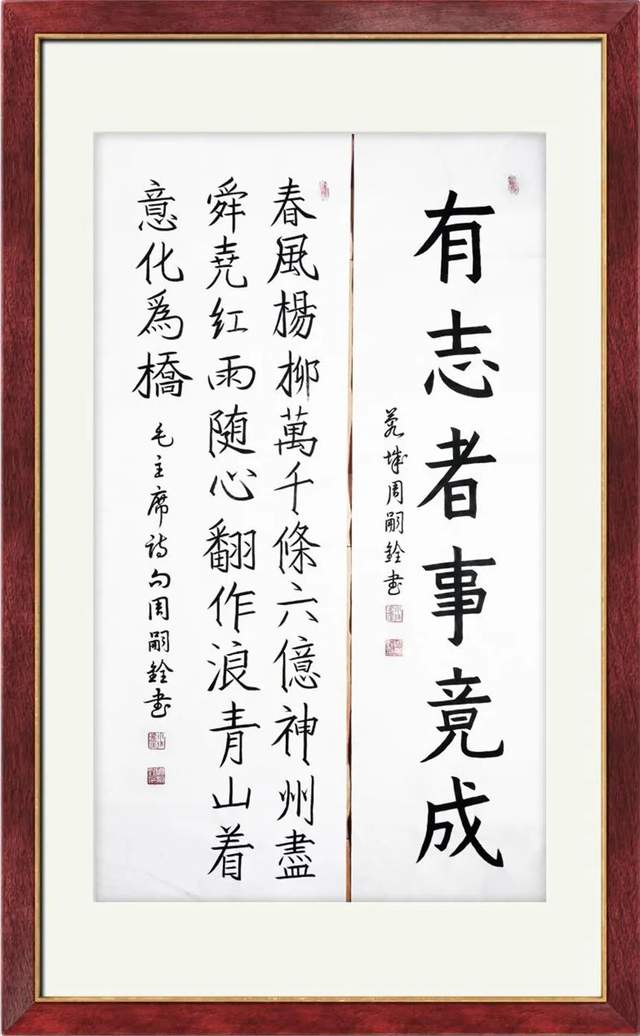 有志者事竟成
周嗣銓书
春風楊柳萬千條六億神州盡
舜堯红雨随心翻作浪青山着
意化爲橋
毛主席诗句周嗣銓书